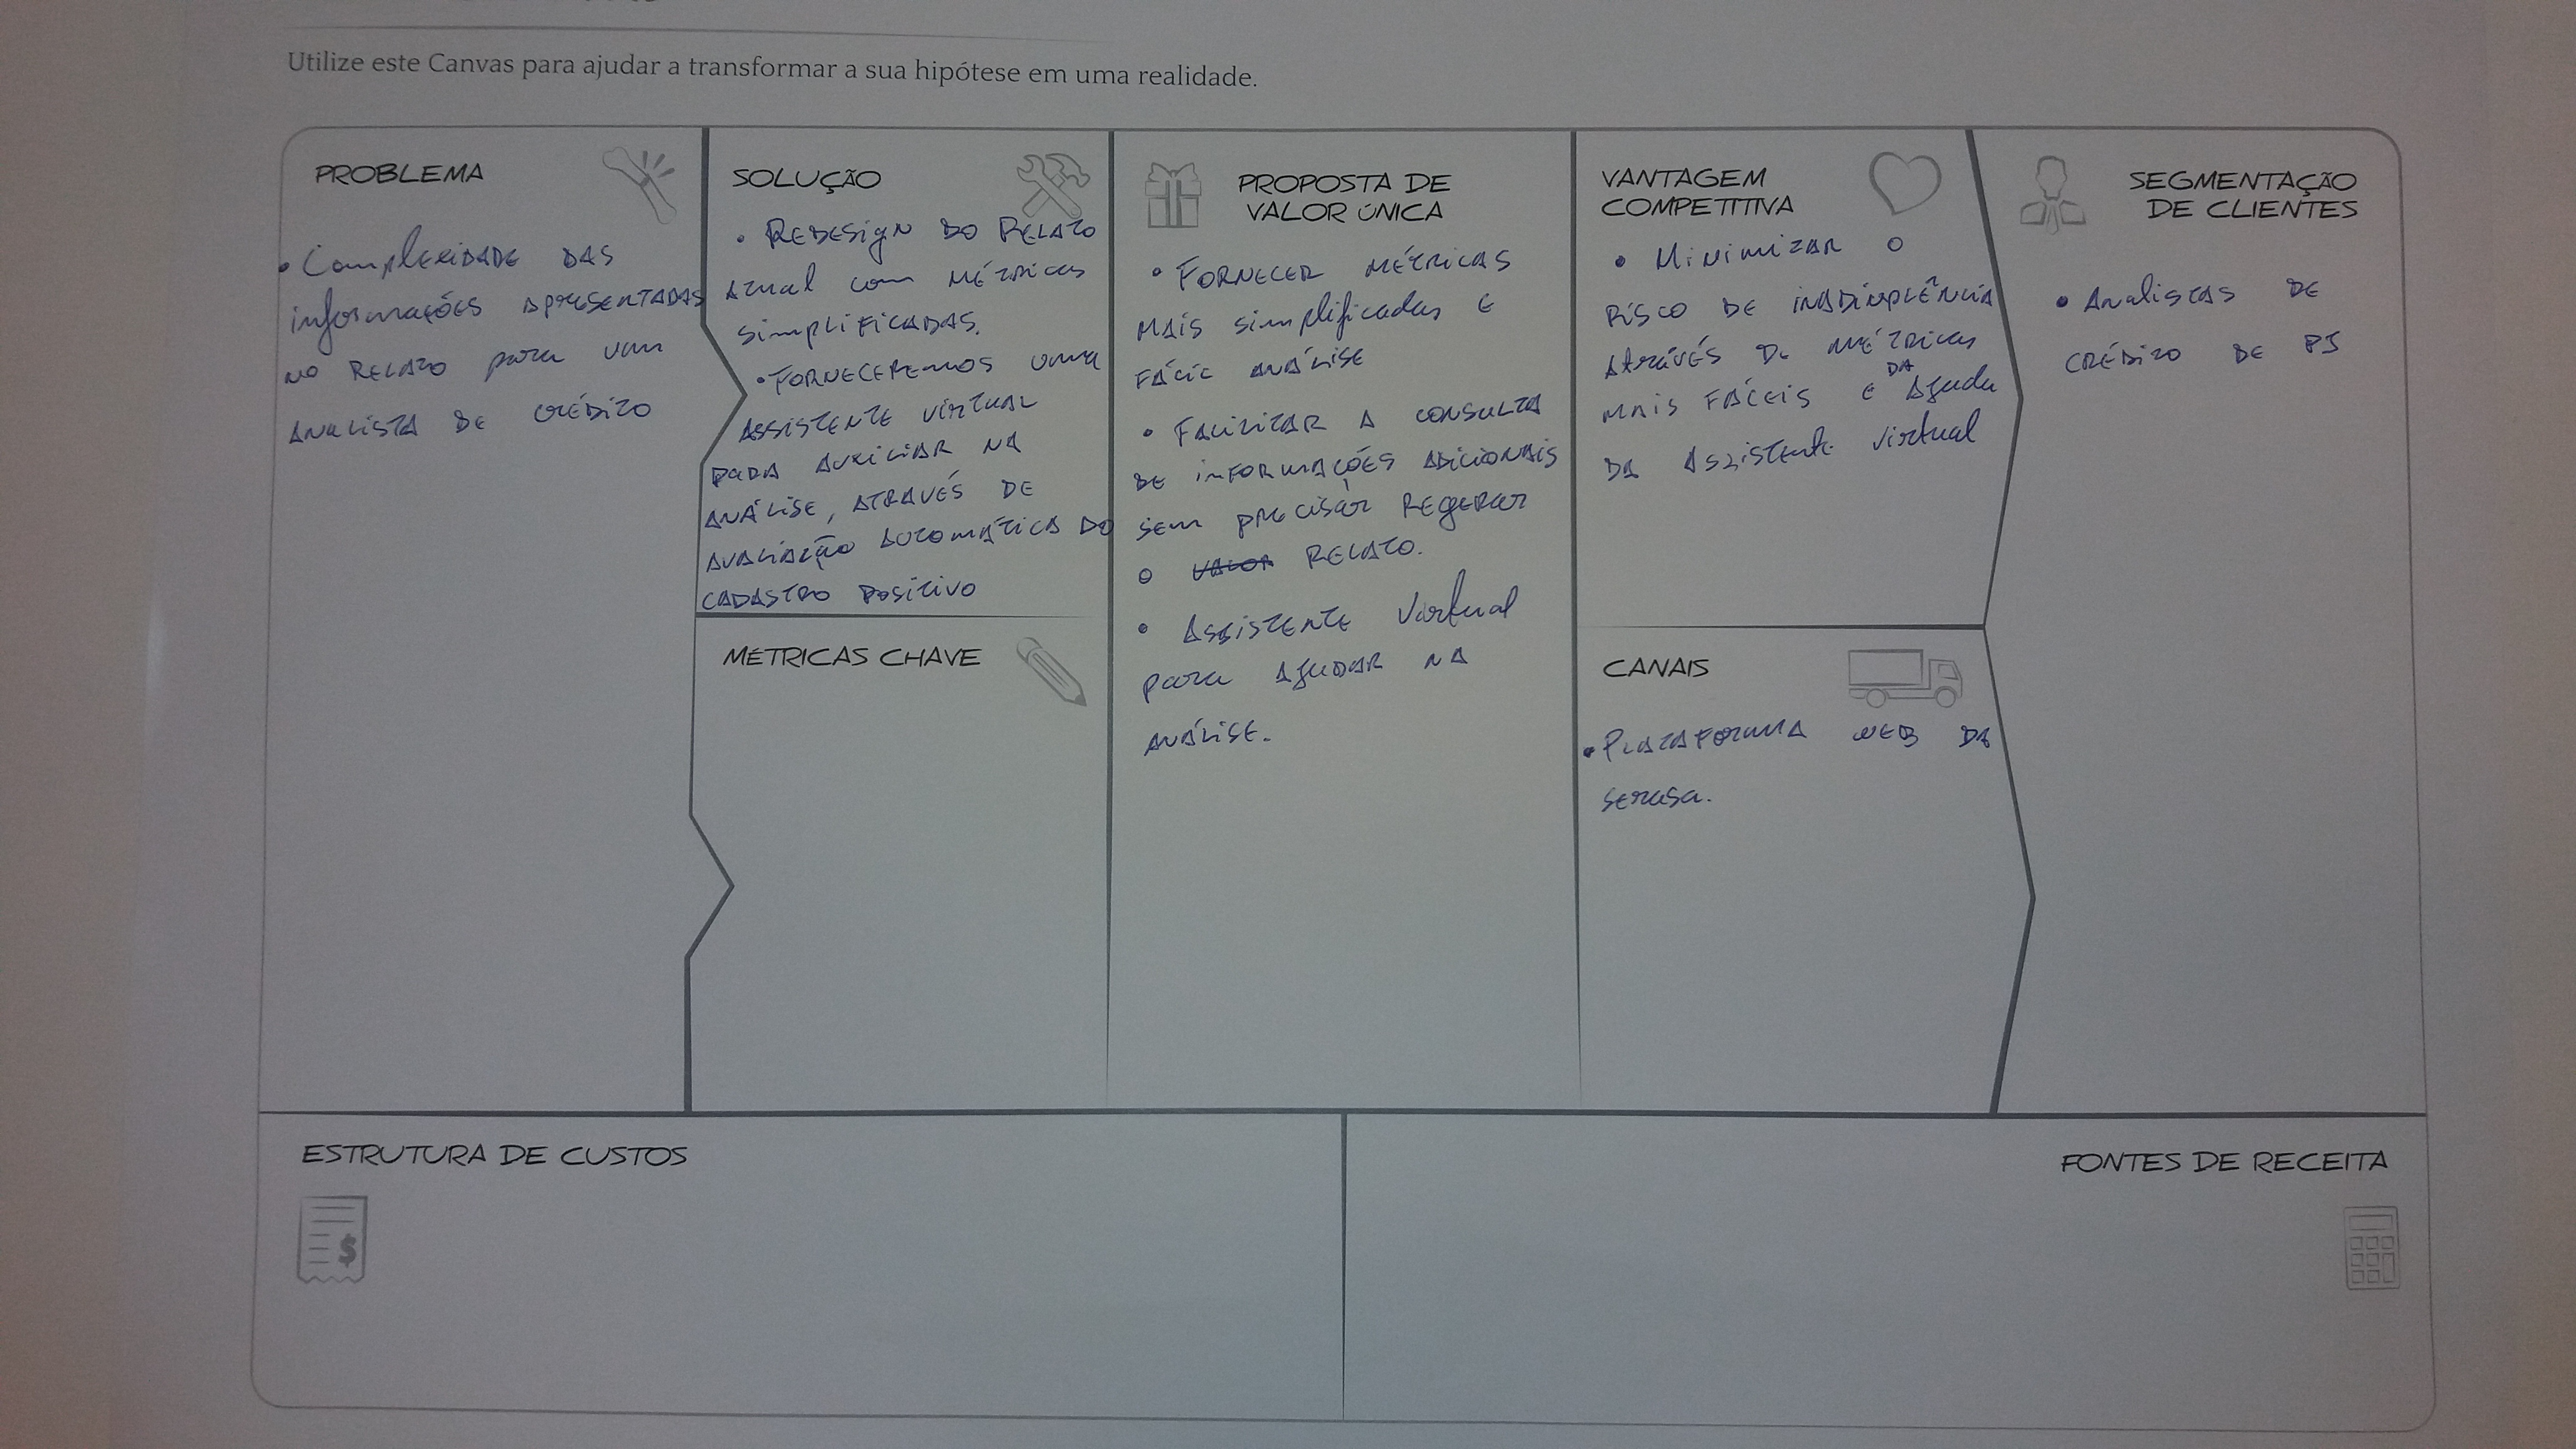 Utilize este Canvas para ajudar a transformar a sua hipótese em uma realidade.
PROBLEMA
• Complexidade DAS
informações APRESENTADAS
no RELATO para um
ANALISTA DE CRÉDITO
SOLUÇÃO
• REDESIGN DO RELATO
ATUAL com MÉTRICAS
SIMPLIFICADAS.
• FORNECEREMOS uma
ASSISTENTE VIRTUAL
PARA AUXILIAR NA
ANÁLISE, ATRAVÉS DE
AVALIAÇÃO AUTOMÁTICA DO
CADASTRO POSITIVO
MÉTRICAS CHAVE
PROPOSTA DE
VALOR ÚNICA
• FORNECER MÉTRICAS
MAIS simplificadas E
FÁCIL ANÁLISE
• FACILITAR A CONSULTA
DE INFORMAÇÕES ADICIONAIS
SEM PRECISAR REGERAR
O VALOR RELATO.
• ASSISTENTE Virtual
para AJUDAR NA
ANÁLISE.
VANTAGEM
COMPETITIVA
• MINIMIZAR O
RISCO DE INADIMPLÊNCIA
ATRAVÉS DE MÉTRICAS
MAIS FÁCEIS E DA AJUDA
DA ASSISTENTE Virtual
CANAIS
• PLATAFORMA WEB DA
SERASA.
SEGMENTAÇÃO
DE CLIENTES
• ANALISTAS DE
CRÉDITO DE PJ
ESTRUTURA DE CUSTOS
$
FONTES DE RECEITA